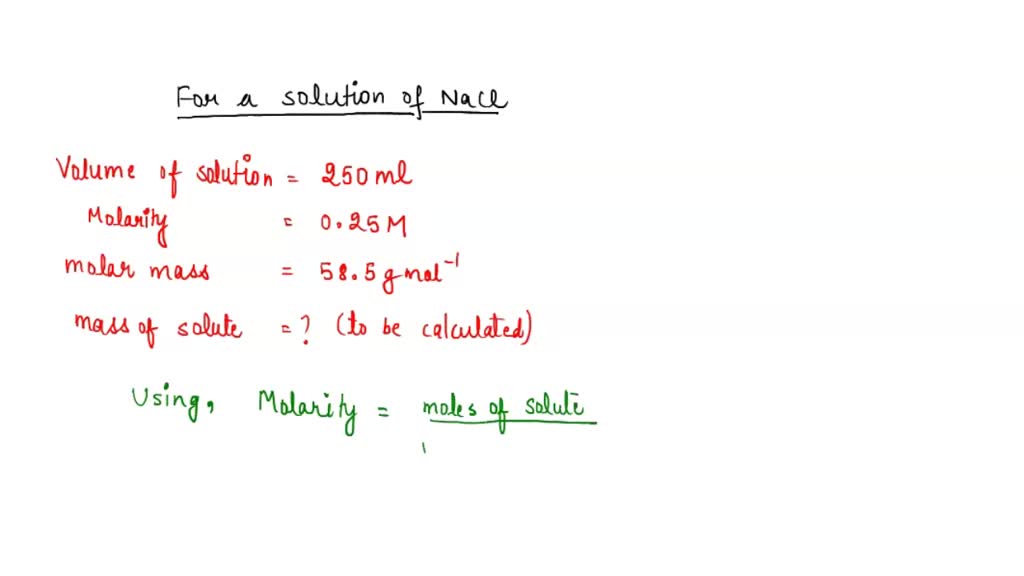 For a solution of NaCl
Volume of solution = 250 ml
Molarity = 0.25 M
molar mass = 58.5 g mol⁻¹
mass of solute = ? (to be calculated)
Using, Molarity = moles of solute